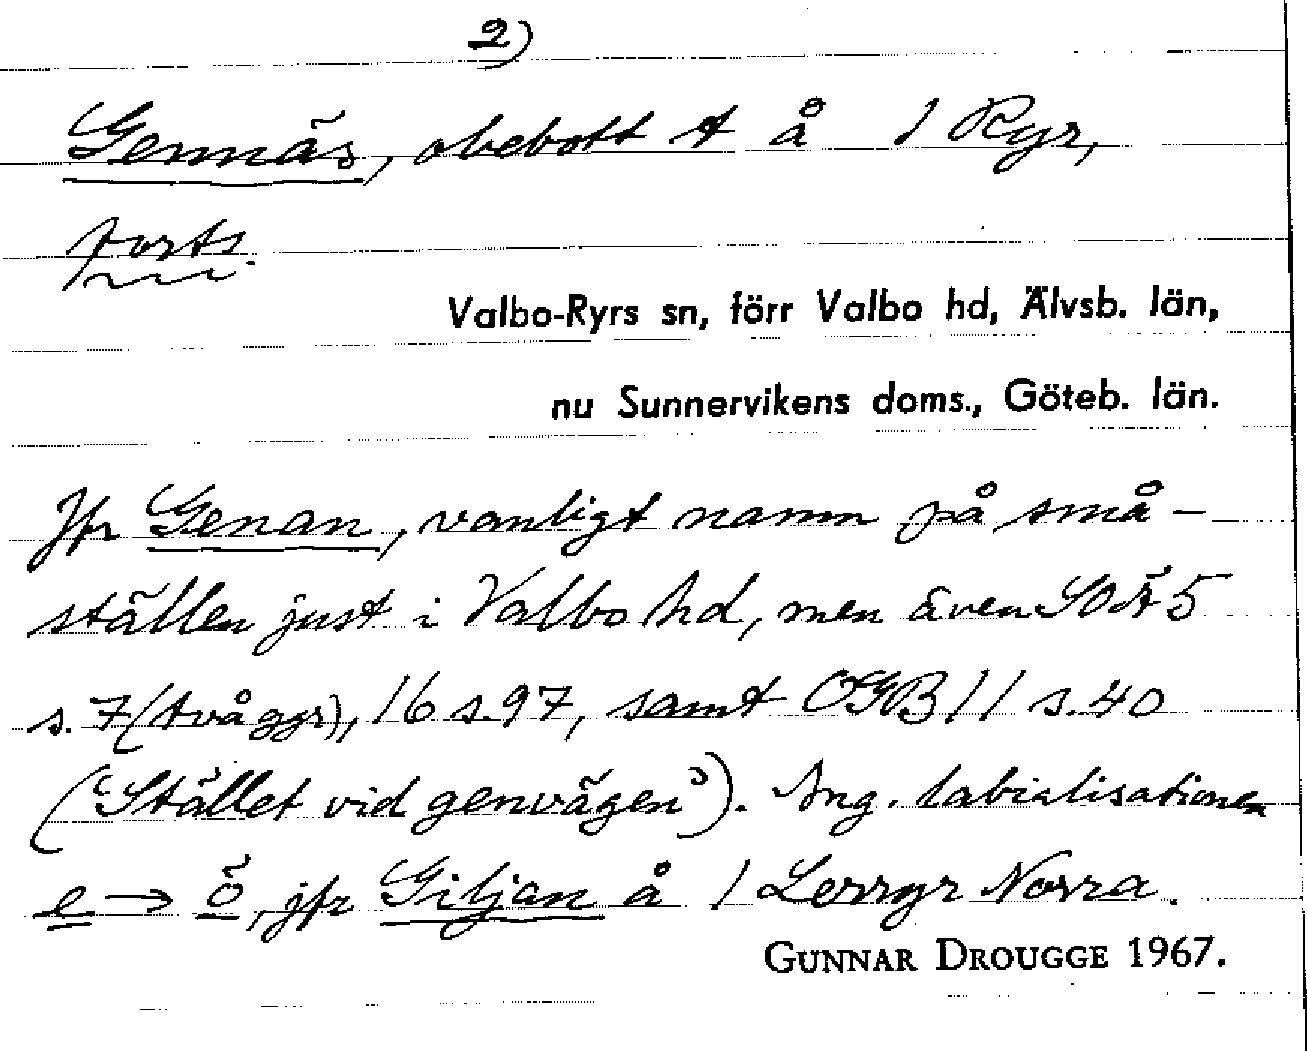 2)
Gennäs, obebott t å 1 Ryr,
forts.
Valbo-Ryrs sn, förr Valbo hd, Älvsb. län,
nu Sunnervikens doms., Göteb. län.
Jfr Genan, vanligt namn på små-
ställen just i Valbo hd, men även SOÄ 5
s. 7 (två ggr), 16 s. 97, samt OGB 11 s. 40
('Stället vid genvägen'). Ang. labialisationen
e → ö, jfr Giljan å 1 Lerryr Norra.
GUNNAR DROUGGE 1967.